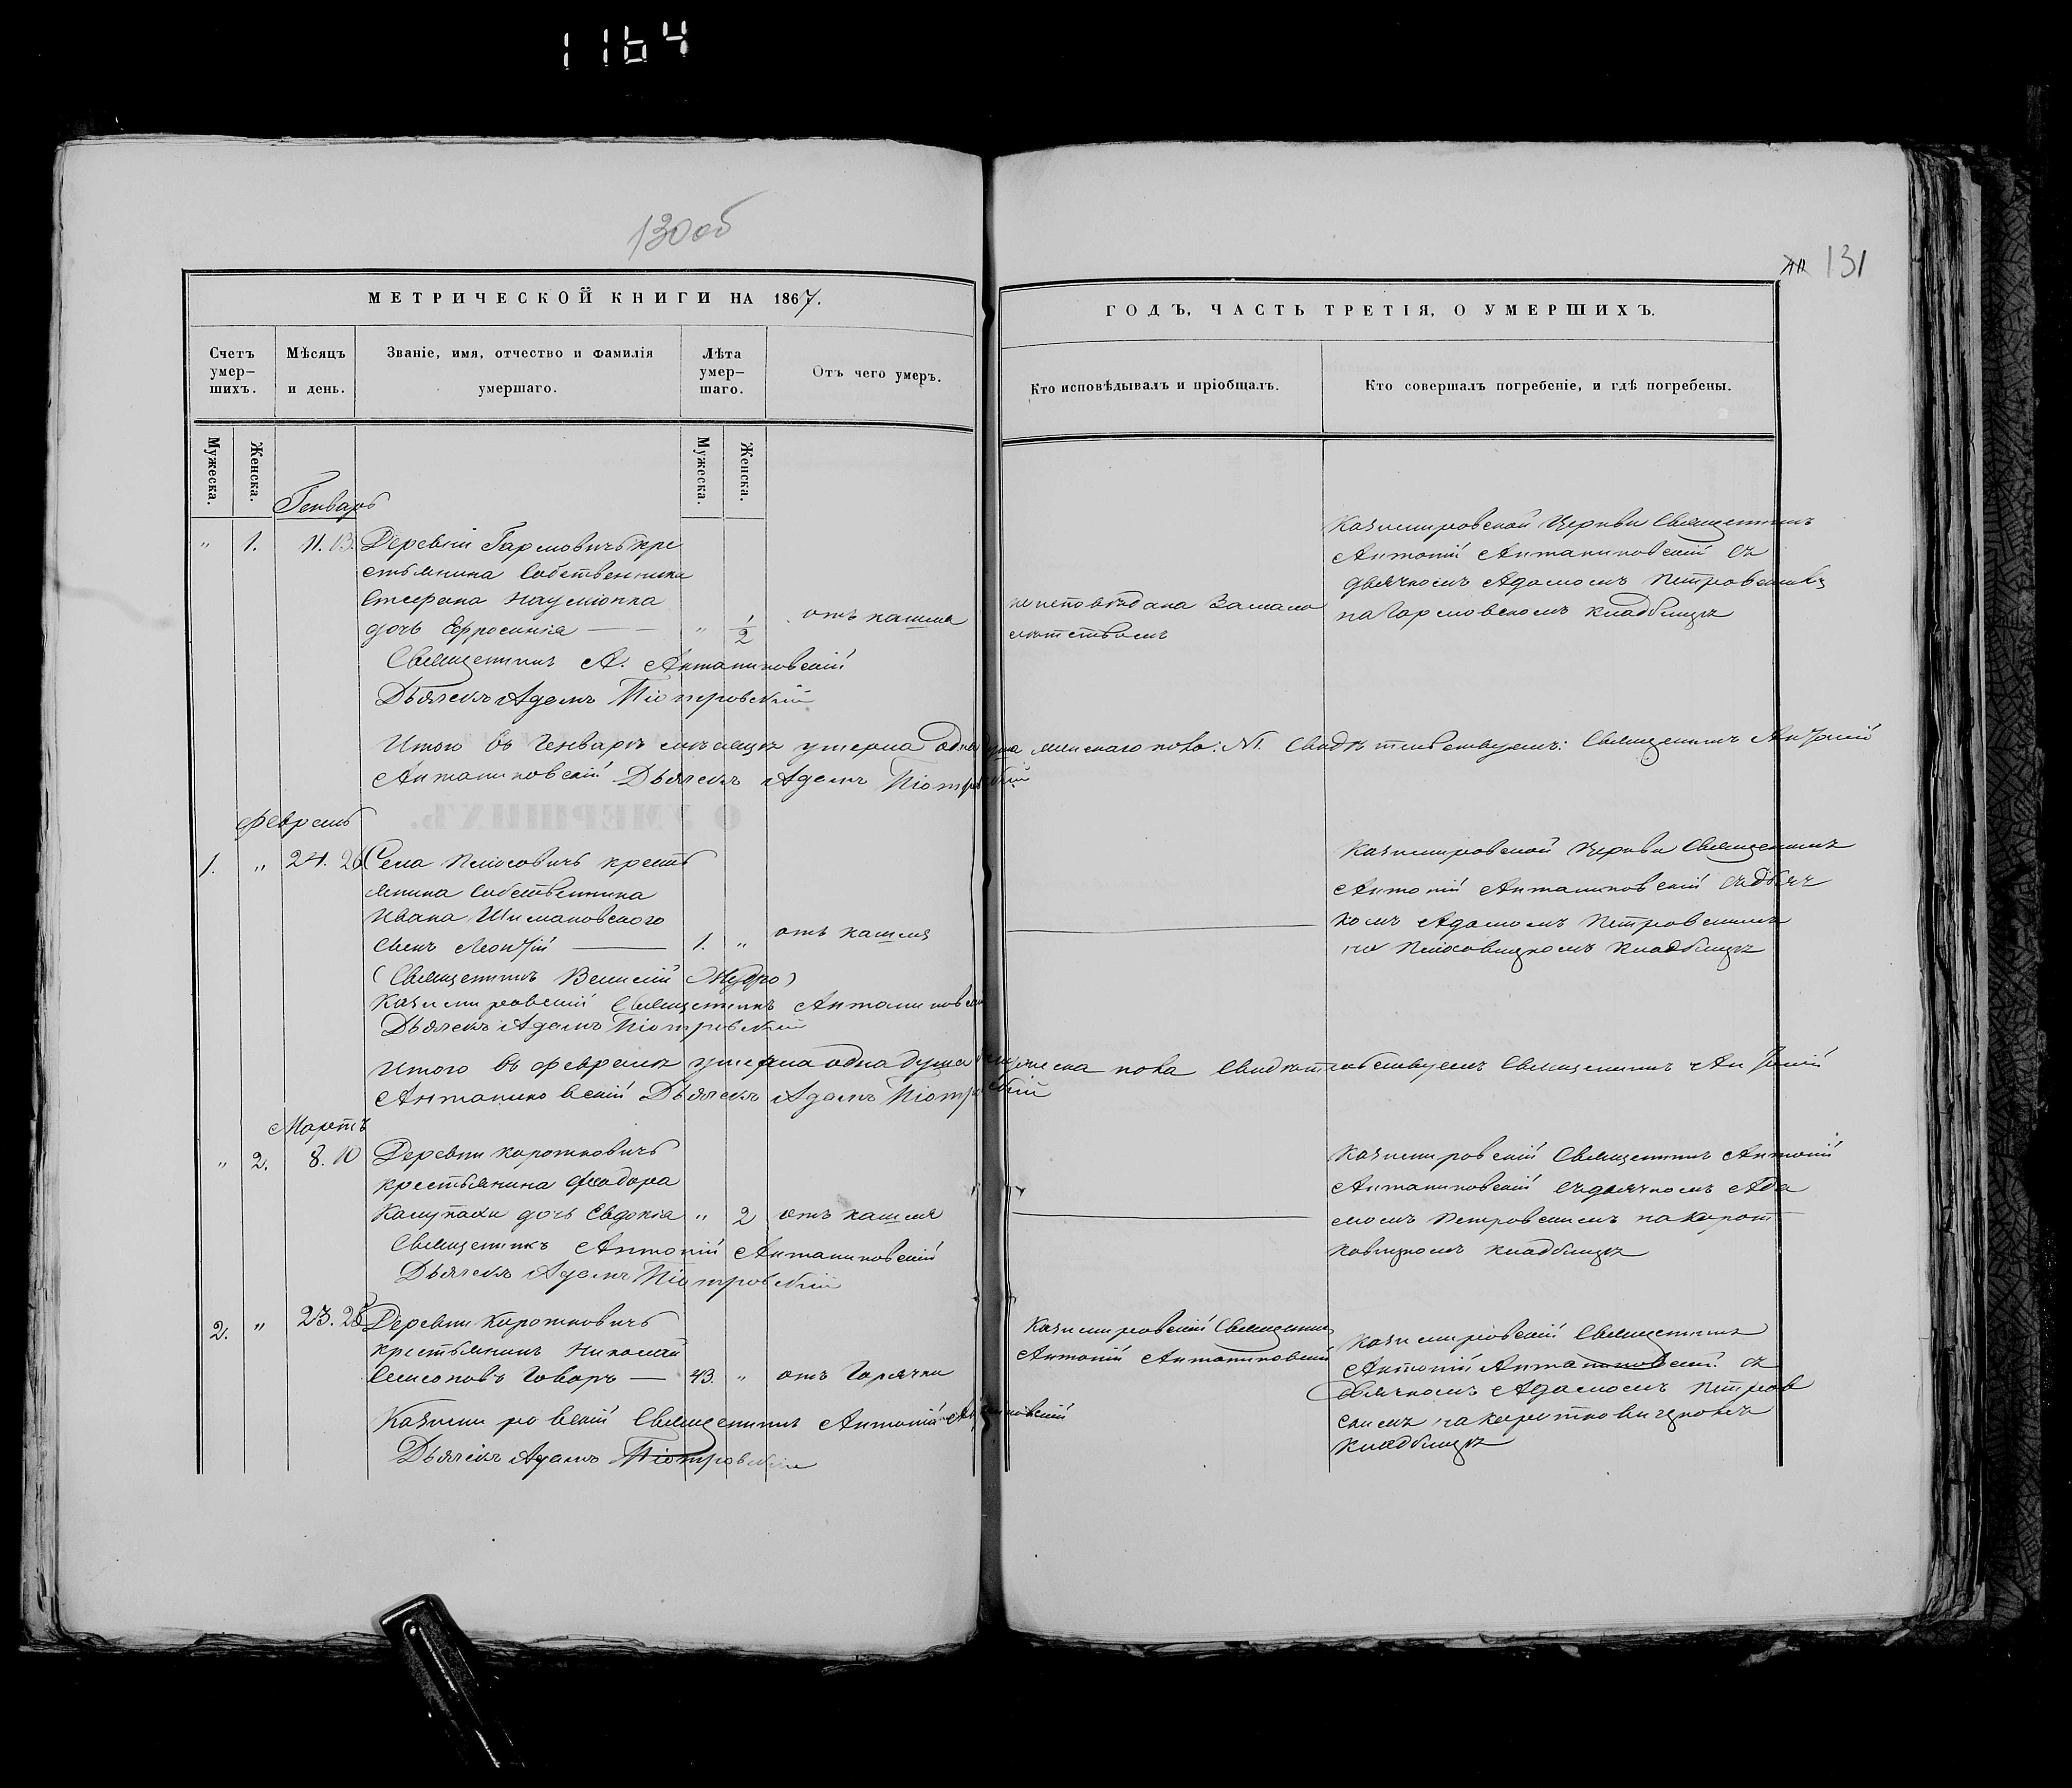 1164
130 об
131
МЕТРИЧЕСКОЙ КНИГИ НА 1867.
Счетъ умер-шихъ.
Мѣсяцъ и день.
Званіе, имя, отчество и фамилія умершаго.
Лѣта умер-шаго.
Отъ чего умеръ.
Мужеска.
Женска.
Мужеска.
Женска.
Генварь
" 1. 11. 13. Деревни Гармовичъ кре
стьянина Собственника
Стефана Наумюнка
дочь Ефросинія — " 1/2 отъ кашля
Священникъ А. Антониковскій
Дьячекъ Адамъ Піотровскій
Итого въ Генварѣ мѣсяцѣ умерла одна душа женскаго пола: №1. Свидѣтельствуемъ: Священникъ Антоній
Антониковскій Дьячекъ Адамъ Піотровскій
Февраль
1. " 24. 26 Села кресть
янина Собственника
Ивана Шимановского
сынъ Леонтій — 1. " отъ кашля
(Священникъ )
Казимировскій Священникъ
Дьячекъ Адамъ Піотровскій
Итого въ Февралѣ умерла одна душа мужеска пола Свидѣтельствуемъ Священникъ Антоній
Антониковскій Дьячекъ Адамъ Піотровскій
Мартъ
" 2. 8. 10 Деревни Коротковичъ
крестьянина Феодора
дочь Евдокія " 2 отъ кашля
Священникъ Антоній Антониковскій
Дьячекъ Адамъ Піотровскій
2. " 23. 25 Деревни Коротковичъ
крестьянинъ Николай
Симоновъ Говоръ — 43. " отъ Горячки
Казимировскій Священникъ Антоній
Дьячекъ Адамъ Піотровскій
ГОДЪ, ЧАСТЬ ТРЕТІЯ, О УМЕРШИХЪ.
Кто исповѣдывалъ и пріобщалъ.
Кто совершалъ погребеніе, и гдѣ погребены.
неисповѣдана за мало
лѣтствомъ
Казимировской Церкви Священникъ
Антоній Антониковскій съ
дьячкомъ Адамомъ Петровскимъ
на Гармовскомъ кладбищѣ
Казимировской Церкви Священникъ
Антоній Антониковскій съ дьяч
комъ Адамомъ Петровскимъ
на кладбищѣ
Казимировскій Священникъ Антоній
Антониковскій съ дьячкомъ Ада
момъ Петровскимъ на Корот
ковицкомъ кладбищѣ
Казимировскій Священникъ
Антоній Антониковскій
Казимировскій Священникъ
Антоній Антониковскій съ
дьячкомъ Адамомъ Петров
скимъ на
кладбищѣ